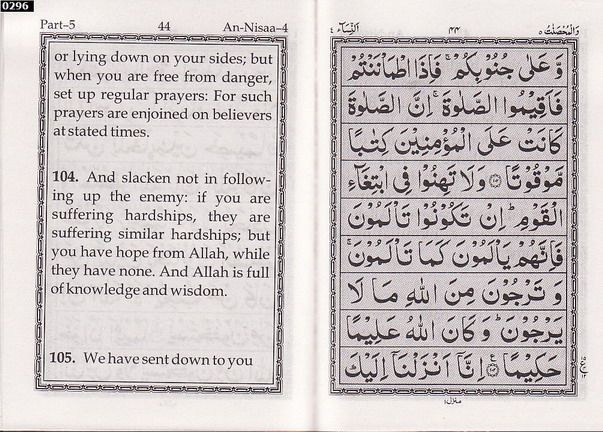 0296
Part-5 44 An-Nisaa-4
or lying down on your sides; but
when you are free from danger,
set up regular prayers: For such
prayers are enjoined on believers
at stated times.
104. And slacken not in follow-
ing up the enemy: if you are
suffering hardships, they are
suffering similar hardships; but
you have hope from Allah, while
they have none. And Allah is full
of knowledge and wisdom.
105. We have sent down to you
وَالْمُحْصَنٰتُ ٥ ٤٤ اَلنِّسَآء ٤
وَّ عَلٰى جُنُوْبِكُمْ ۚ فَاِذَا اطْمَاْنَنْتُمْ
فَاَقِيْمُوا الصَّلٰوةَ ۚ اِنَّ الصَّلٰوةَ
كَانَتْ عَلَى الْمُؤْمِنِيْنَ كِتٰبًا
مَّوْقُوْتًا ۝ وَلَا تَهِنُوْا فِى ابْتِغَآءِ
الْقَوْمِ ؕ اِنْ تَكُوْنُوْا تَاْلَمُوْنَ
فَاِنَّهُمْ يَاْلَمُوْنَ كَمَا تَاْلَمُوْنَ ۚ
وَ تَرْجُوْنَ مِنَ اللّٰهِ مَا لَا
يَرْجُوْنَ ؕ وَ كَانَ اللّٰهُ عَلِيْمًا
حَكِيْمًا ۝ اِنَّاۤ اَنْزَلْنَاۤ اِلَيْكَ
منزل ١